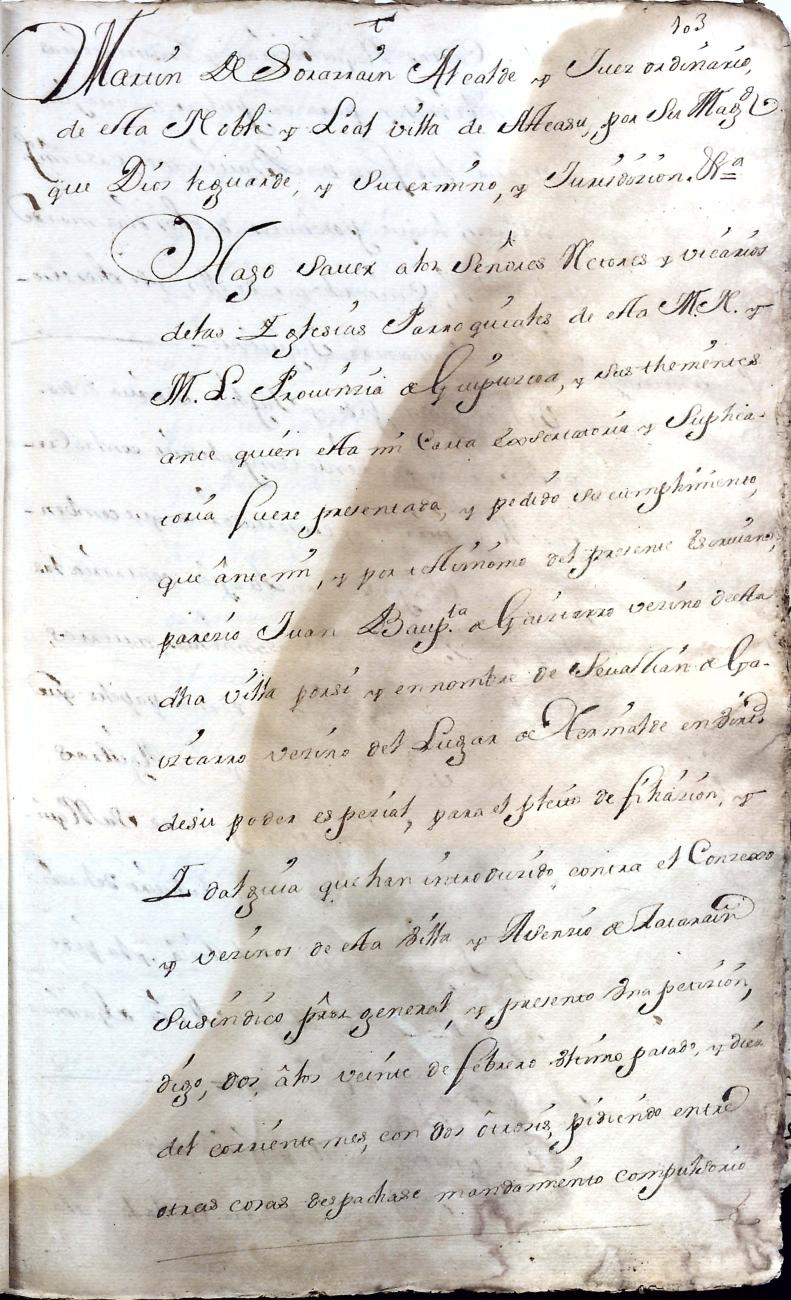 103
Martin De Sorarrain Alcalde y Juez ordinario,
de esta Noble y Leal villa de Alleasu, por Su Mag.d
que Dios leguarde, y Sutermino, y Jurisdizion. &a
Hago Saver alos Señores Retores y vicarios
delas Iglesias Parroquiales de esta M. N. y
M. L. Provinzia de Guipuzcoa, y sus thenientes
ante quien esta mi Carta Exsortatoria y Suplica-
toria fuere presentada, y pedido su cumplimiento,
que ante mi, y por testimonio del presente Escrivano,
parezio Juan Baup.ta de Gavizarro vezino desta
dha villa porsi y en nombre de Sevastian de Ga-
vizarro vezino del Lugar de Hernialde en virtd
desu poder espezial, para el pleito de filiazion, y
Idalguia que han introduzido contra el Conzexo
y vezinos de esta Villa y Asenzio de Zatarain
Susindico pror general, y presento una petizion,
digo, dos, a los veinte de febrero ultimo pasado, y diez
del corriente mes, con dos otrosis, pidiendo entre
otras cosas despachase mandamiento compulsorio